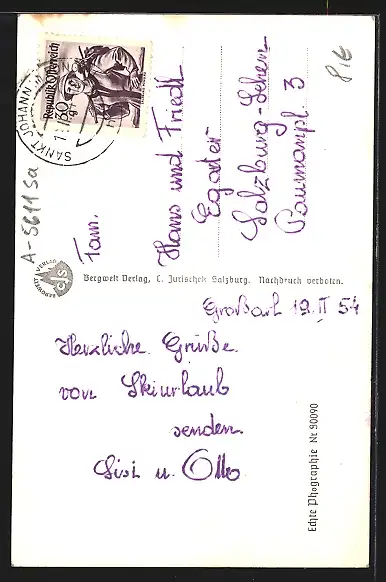 Großarl 19. II 54
Herzliche Grüße
von Skiurlaub
senden
Sisi u. Otto
Fam.
Hans und Friedl
Egarter
Salzburg-Lehen
Paumannpl. 3
Republik Österreich
30 g
SANKT JOHANN
Bergwelt Verlag, C. Jurischek Salzburg. Nachdruck verboten.
BERGWELT VERLAG
Echte Phographie Nr 50090
A-5611 Sa
816